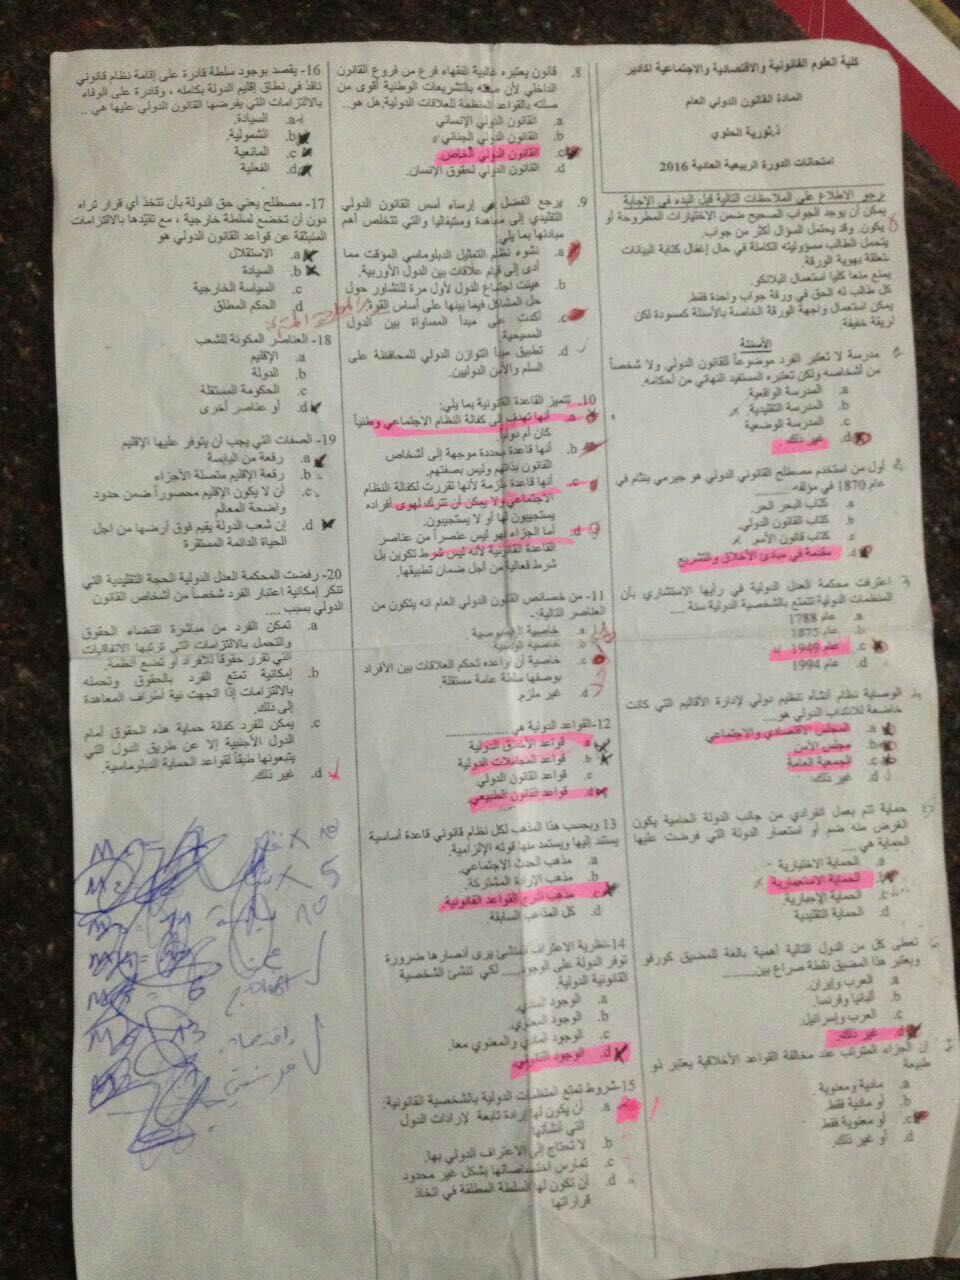 كلية العلوم القانونية والاقتصادية والاجتماعية اكادير
المادة القانون الدولي العام
ذ.ثورية الحلوي
امتحانات الدورة الربيعية العادية 2016
يرجى الاطلاع على الملاحظات التالية قبل البدء في الإجابة
يمكن أن يوجد الجواب الصحيح ضمن الاختيارات المطروحة أو
يكون. وقد يحتمل السؤال أكثر من جواب.
يتحمل الطالب مسؤوليته الكاملة في حال إغفال كتابة البيانات
متعلقة بهوية الورقة.
يمنع منعا كليا استعمال البلانكو.
كل طالب له الحق في ورقة جواب واحدة فقط.
يمكن استعمال واجهة الورقة الخاصة بالأسئلة كمسودة لكن
بطريقة خفيفة.
الأسئلة
مدرسة لا تعتبر الفرد موضوعاً للقانون الدولي ولا شخصاً
من أشخاصه ولكن تعتبره المستفيد النهائي من أحكامه.
a. المدرسة الواقعية.
b. المدرسة التقليدية.
c. المدرسة الوضعية
d. غير ذلك.
أول من استخدم مصطلح القانوني الدولي هو جيرمي بنثام في
عام 1870 في مؤلفه........
a. كتاب البحر الحر.
b. كتاب القانون الدولي.
c. كتاب قانون الأمم
d. مقدمة في مبادئ الأخلاق والتشريع
اعترفت محكمة العدل الدولية في رأيها الاستشاري بأن
المنظمات الدولية تتمتع بالشخصية الدولية سنة ....
a. عام 1788
b. عام 1875
c. عام 1949
d. عام 1994
الوصاية نظام أنشأه تنظيم دولي لإدارة الأقاليم التي كانت
خاضعة للانتداب الدولي هو....
a. المجلس الاقتصادي والاجتماعي
b. مجلس الأمن
c. الجمعية العامة
d. غير ذلك.
حماية تتم بعمل انفرادي من جانب الدولة الحامية يكون
الغرض منه ضم أو استعمار الدولة التي فرضت عليها
الحماية هي ....
a. الحماية الاختيارية
b. الحماية الاستعمارية
c. الحماية الإجبارية.
d. الحماية التقليدية
تعطى كل من الدول التالية أهمية بالغة للمضيق كورفو
ويعتبر هذا المضيق نقطة صراع بين.........
a. العرب وإيران.
b. ألبانيا وفرنسا.
c. العرب وإسرائيل.
d. غير ذلك.
إن الجزاء المترتب عند مخالفة القواعد الأخلاقية يعتبر ذو
طبيعة
a. مادية ومعنوية.
b. أو مادية فقط
c. أو معنوية فقط
d. أو غير ذلك.
8. قانون يعتبره غالبية الفقهاء فرع من فروع القانون
الداخلي لأن صلته بالتشريعات الوطنية أقوى من
صلته بالقواعد المنظمة للعلاقات الدولية.هل هو..
a. القانون الدولي الإنساني
b. القانون الدولي الجنائي
c. القانون الدولي الخاص.
d. القانون الدولي لحقوق الإنسان.
9. يرجع الفضل في إرساء أسس القانون الدولي
التقليدي إلى معاهدة وستيفاليا والتي تتخلص أهم
مبادئها بما يلي:
a. نشوء نظم التمثيل الدبلوماسي المؤقت مما
أدى إلى قيام علاقات بين الدول الأوربية.
b. هيئت اجتماع الدول لأول مرة للتشاور حول
حل المشاكل فيما بينها على أساس القوة.
c. أكدت على مبدأ المساواة بين الدول
المسيحية.
d. تطبيق مبدأ التوازن الدولي للمحافظة على
السلم والأمن الدوليين.
10. تتميز القاعدة القانونية بما يلي:
a. أنها تهدف إلى كفالة النظام الاجتماعي وطنياً
كان أم دولياً.
b. أنها قاعدة محددة موجهة إلى أشخاص
القانون بذاتهم وليس بصفتهم.
c. أنها قاعدة ملزمة لأنها تقررت لكفالة النظام
الاجتماعي ولا يمكن أن تترك لهوى أفراده
يستجيبون لها أو لا يستجيبون.
d. أما الجزاء فهو ليس عنصراً من عناصر
القاعدة القانونية لأنه ليس شرط تكوين بل
شرط فعالية من أجل ضمان تطبيقها.
11- من خصائص القانون الدولي العام انه يتكون من
العناصر التالية:-
a. خاصية
b. خاصية
c. خاصية أن قواعده تحكم العلاقات بين الأفراد
بوصفها سلطة عامة مستقلة.
d. غير ملزم.
12-القواعد الدولية هي ..............
a. قواعد الأخلاق الدولية
b. قواعد المجاملات الدولية
c. قواعد القانون الدولي
d. قواعد القانون الطبيعي
13 وبحسب هذا المذهب لكل نظام قانوني قاعدة أساسية
يستند إليها ويستمد منها قوته الإلزامية.
a. مذهب الحدث الاجتماعي.
b. مذهب الإرادة المشتركة.
c. مذهب تدرج القواعد القانونية.
d. كل المذاهب السابقة.
14-نظرية الاعتراف المنشئ يرى أنصارها ضرورة
توفر الدولة على الوجود.... لكي تنشئ الشخصية
القانونية الدولية.
a. الوجود المادي.
b. الوجود المعنوي.
c. الوجود المادي والمعنوي معا.
d. الوجود القانوني
15-شروط تمتع المنظمات الدولية بالشخصية القانونية:
a. أن يكون لها إرادة تابعة لإرادات الدول
التي أنشأتها
b. لا تحتاج إلى الاعتراف الدولي بها.
c. تمارس اختصاصاتها بشكل غير محدود
d. أن تكون لها السلطة المطلقة في اتخاذ
قراراتها
16- يقصد بوجود سلطة قادرة على إقامة نظام قانوني
نافذ في نطاق إقليم الدولة بكامله ، وقادرة على الوفاء
بالالتزامات التي يفرضها القانون الدولي عليها هي ..
a. السيادة.
b. الشمولية
c. المانعية
d. الفعلية
17- مصطلح يعني حق الدولة بأن تتخذ أي قرار تراه
دون أن تخضع لسلطة خارجية ، مع تقيّدها بالالتزامات
المنبثقة عن قواعد القانون الدولي هو
a. الاستقلال
b. السيادة
c. السياسة الخارجية
d. الحكم المطلق
18- العناصر المكونة للشعب
a. الإقليم
b. الدولة
c. الحكومة المستقلة
d. أو عناصر أخرى
19- الصفات التي يجب أن يتوفر عليها الإقليم
a. رقعة من اليابسة
b. رقعة الإقليم متصلة الأجزاء
c. أن لا يكون الإقليم محصوراً ضمن حدود
واضحة المعالم
d. إن شعب الدولة يقيم فوق أرضها من اجل
الحياة الدائمة المستقرة
20- رفضت المحكمة العدل الدولية الحجة التقليدية التي
تنكر إمكانية اعتبار الفرد شخصاً من أشخاص القانون
الدولي بسبب ....
a. تمكن الفرد من مباشرة اقتضاء الحقوق
والتحمل بالالتزامات التي ترتبها الاتفاقيات
التي تقرر حقوقاً للأفراد أو تضع أنظمة.
b. إمكانية تمتع الفرد بالحقوق وتحمله
بالالتزامات إذا اتجهت نية أطراف المعاهدة
إلى ذلك.
c. يمكن للفرد كفالة حماية هذه الحقوق أمام
الدول الأجنبية إلا عن طريق الدول التي
يتبعونها طبقاً لقواعد الحماية الدبلوماسية.
d. غير ذلك.